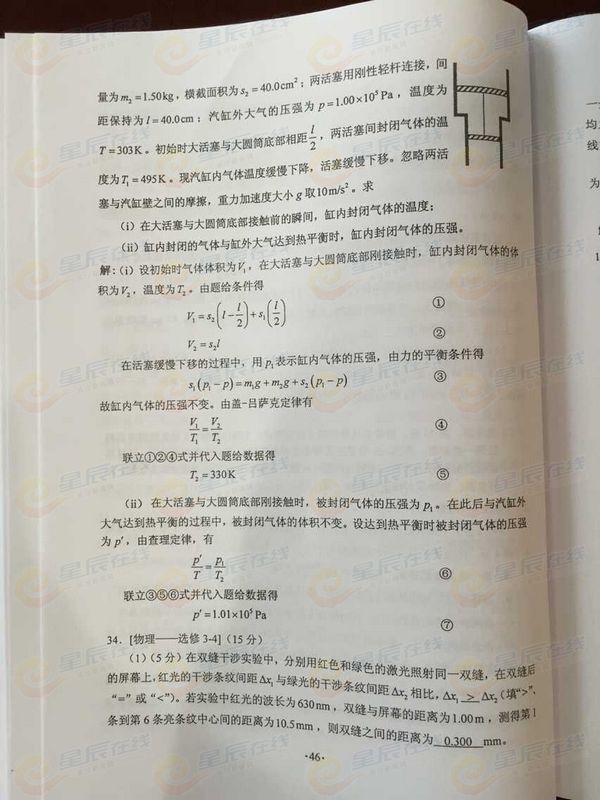 量为m₂=1.50kg，横截面积为s₂=40.0cm²；两活塞用刚性轻杆连接，间
距保持为l=40.0cm；汽缸外大气的压强为p=1.00×10⁵Pa，温度为
T=303K。初始时大活塞与大圆筒底部相距l/2，两活塞间封闭气体的温
度为T₁=495K。现汽缸内气体温度缓慢下降，活塞缓慢下移。忽略两活
塞与汽缸壁之间的摩擦，重力加速度大小g取10m/s²。求
（i）在大活塞与大圆筒底部接触前的瞬间，缸内封闭气体的温度；
（ii）缸内封闭的气体与缸外大气达到热平衡时，缸内封闭气体的压强。
解：（i）设初始时气体体积为V₁，在大活塞与大圆筒底部刚接触时，缸内封闭气体的体
积为V₂，温度为T₂。由题给条件得
V₁=s₂(l-l/2)+s₁(l/2) ①
V₂=s₂l ②
在活塞缓慢下移的过程中，用p₁表示缸内气体的压强，由力的平衡条件得
s₁(p₁-p)=m₁g+m₂g+s₂(p₁-p) ③
故缸内气体的压强不变。由盖-吕萨克定律有
V₁/T₁=V₂/T₂ ④
联立①②④式并代入题给数据得
T₂=330K ⑤
（ii）在大活塞与大圆筒底部刚接触时，被封闭气体的压强为p₁。在此后与汽缸外
大气达到热平衡的过程中，被封闭气体的体积不变。设达到热平衡时被封闭气体的压强
为p′，由查理定律，有
p′/T=p₁/T₂ ⑥
联立③⑤⑥式并代入题给数据得
p′=1.01×10⁵Pa ⑦
34．[物理——选修3-4]（15分）
（1）（5分）在双缝干涉实验中，分别用红色和绿色的激光照射同一双缝，在双缝后
的屏幕上，红光的干涉条纹间距Δx₁与绿光的干涉条纹间距Δx₂相比，Δx₁ > Δx₂（填“>”、
“=”或“<”）。若实验中红光的波长为630nm，双缝与屏幕的距离为1.00m，测得第1
条到第6条亮条纹中心间的距离为10.5mm，则双缝之间的距离为 0.300 mm。
·46·
星辰在线